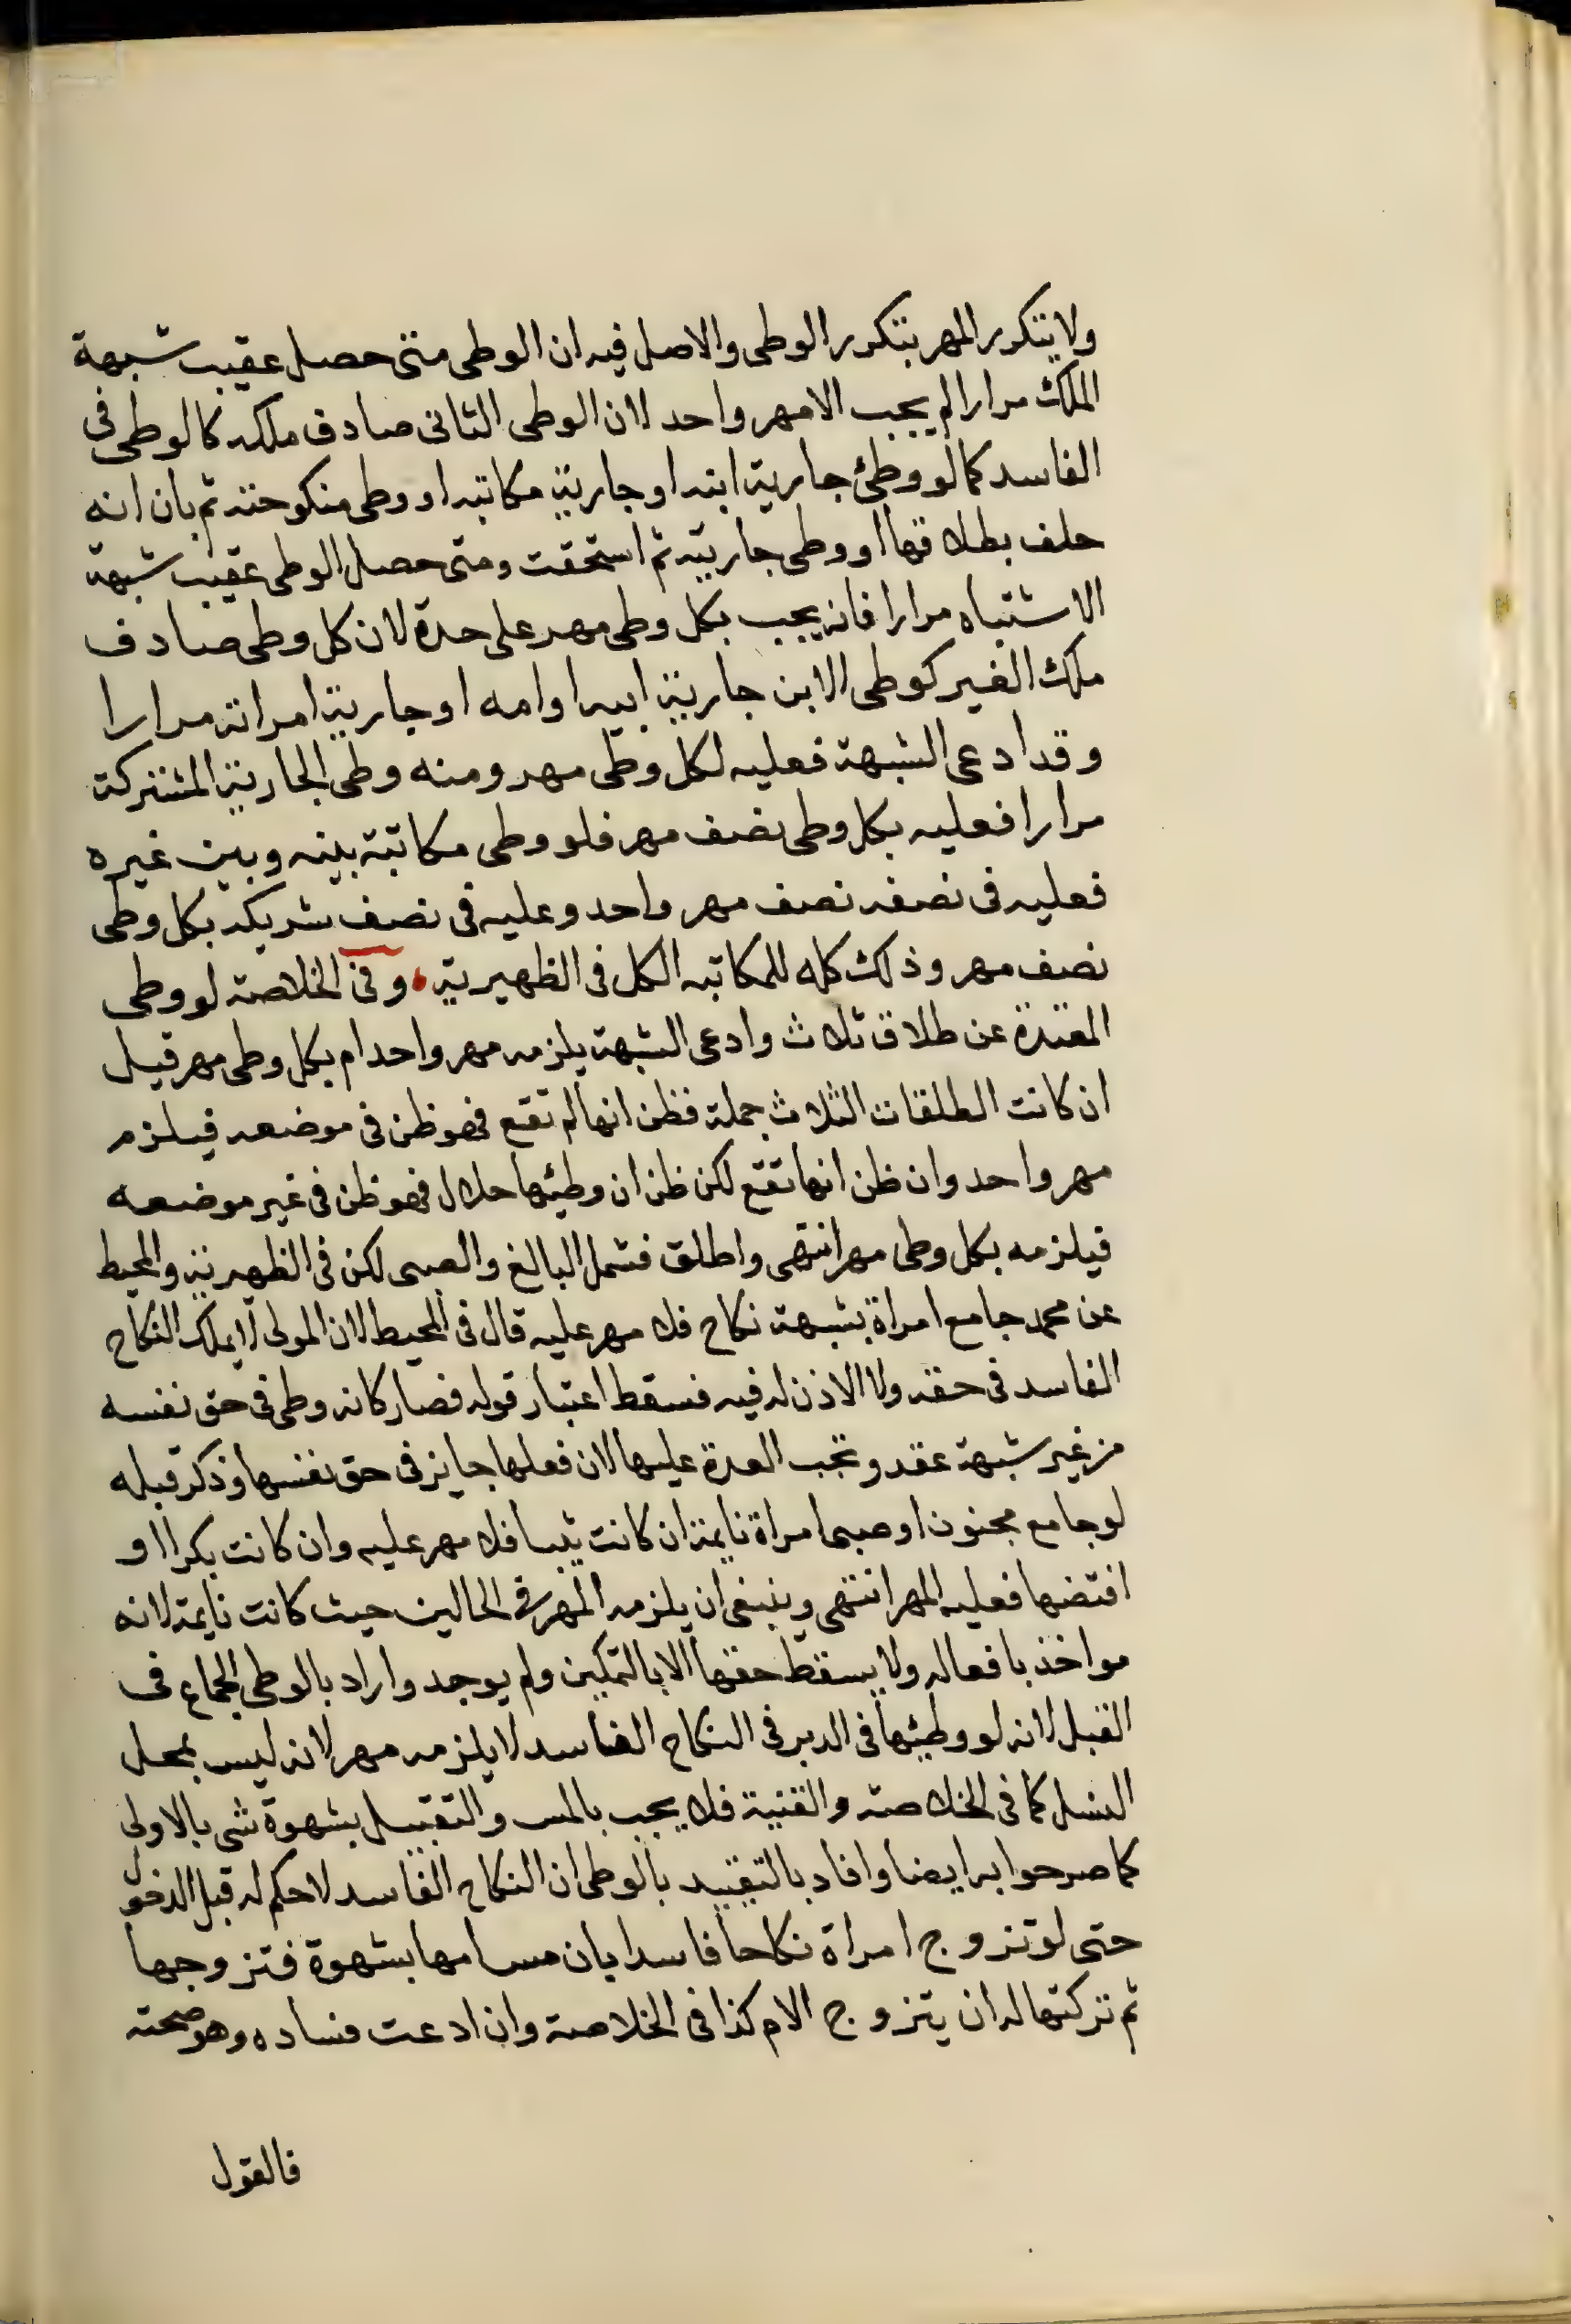 ولا يتكرر المهر بتكرر الوطى والاصل فيه ان الوطى متى حصل عقيب شبهة
الملك مرارا لم يجب الا مهر واحد لان الوطى الثانى صادف ملكه كالوطى فى
الفاسد كما لو وطئ جارية ابنه او جارية مكاتبه او وطى منكوحته ثم بان انه
حلف بطلاقها او وطى جاريته ثم استحقت ومتى حصل الوطى عقيب شبهة
الاشتباه مرارا فانه يجب بكل وطى مهر على حدة لان كل وطى صادف
ملك الغير كوطى الابن جارية ابيه او امه او جارية امراته مرارا
وقد ادعى الشبهة فعليه لكل وطى مهر ومنه وطى الجارية المشتركة
مرارا فعليه بكل وطى نصف مهر فلو وطى مكاتبة بينه وبين غيره
فعليه فى نصفه نصف مهر واحد وعليه فى نصف شريكه بكل وطى
نصف مهر وذلك كله للمكاتبه الكل فى الظهيرية وفى الخلاصة لو وطى
المعتدة عن طلاق ثلاث وادعى الشبهة يلزمه مهر واحد ام بكل وطى مهر قيل
ان كانت الطلقات الثلاث جملة فظن انها لم تقع فهو ظن فى موضعه فيلزم
مهر واحد وان ظن انها تقع لكن ظن ان وطيئها حلال فهو ظن فى غير موضعه
فيلزمه بكل وطى مهر انتهى واطلق فشمل البالغ والصبى لكن فى الظهيرية والمحيط
عن محمد جامع امراة بشبهة نكاح فلا مهر عليه قال فى المحيط لان المولى لا يملك النكاح
الفاسد فى حقه ولا الاذن له فيه فسقط اعتبار قوله فصار كانه وطى فى حق نفسه
من غير شبهة عقد وتجب العدة عليها لان فعلها جايز فى حق نفسها وذكر قبله
لو جامع مجنون او صبى امراة نايمة ان كانت ثيبا فلا مهر عليه وان كانت بكرا او
افتضها فعليه المهر انتهى وينبغى ان يلزمه المهر فى الحالين حيث كانت نايمة لانه
مواخذ بافعاله ولا يسقط حقها الا بالتمكين ولم يوجد واراد بالوطى الجماع فى
القبل لانه لو وطيئها فى الدبر فى النكاح الفاسد لا يلزمه مهر لانه ليس بمحل
النسل كما فى الخلاصة والقنية فلا يجب بالمس والتقبيل بشهوة شى بالاولى
كما صرحوا به ايضا وافاد بالتقييد بالوطى ان النكاح الفاسد لا حكم له قبل الدخول
حتى لو تزوج امراة نكاحا فاسدا بان مس امها بشهوة فتزوجها
ثم تركتها له ان يتزوج الام كذا فى الخلاصة وان ادعت فساده وهو صحته
فالقول